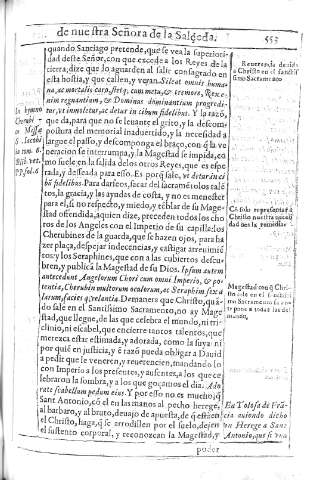 de nuestra Señora de la Salceda.
553
quando Santiago pretende, que se vea la superiori-
dad deste Señor, con que excede a los Reyes de la
tierra, dize que lo aguarden al salir consagrado en
esta hostia, y que callen, y vean. Sileat omnis huma-
na, ac mortalis caro, stetq; cum metu, & tremore, Rex e-
nim regnantium, & Dominus dominantium progredi-
tur, vt immoletur, ac detur in cibum fidelibus. Y la razõ,
que da, para que no se leuante el grito, y la descom-
postura del memorial inaduertido, y la necesidad a
largue el passo, y descomponga el braço, con q̃ la ve-
neracion se interrumpa, y la Magestad se impida, co-
mo suele en la salida de los otros Reyes, que es espe-
rada, y deseada para esso. Es porq̃ sale, vt detur in ci-
bũ fidelibus. Para darseos, sacar del sacramẽto los salẽ-
tos, la gracia, y las ayudas de costa, y no es menester
para el, si no respecto, y miedo, y tẽblar de su Mage-
stad ofendida, aquien dize, preceden todos los cho
ros de los Angeles con el Imperio de su capilla: los
Cherubines de la guarda, que se hazen ojos, para ha
zer plaça, despejar indecencias, y castigar atreuimiẽ-
tos y los Seraphines, que con a las cubiertos descu-
bren, y publicã la Magestad de su Dios. Ipsum autem
antecedunt Angelorum Chori cum omni Imperio, & po-
tentia, Cherubin multorum oculorum, ac Seraphim sex a
larum, facies q; velantia. De manera que Christo, quã-
do sale en el Santissimo Sacramento, no ay Mage
stad, que llegue, de las que celebra el mundo, ni tri-
clinio, ni escabel, que encierre tantos talentos, que
merezca estar estimada, y adorada, como la suya: ni
por quiẽ en justicia, y ẽ razõ pueda obligar a Dauid
a pedir que le veneren, y reuerencien, mandando in
con Imperio a los presentes, y ausentes, a los que ce
lebraron la sombra, y a los que goçamos el dia. Ado
rate scabellum pedum eius. Y por esso no es mucho, q̃
Sant Antonio, cõ el en las manos al pecho herege,
al barbaro, y al bruto, deuajo de apuesta, de q̃ estaẽ
el Christo, haga, q̃ se arrodillen por el suelo, dejen
el sustento corporal, y reconozcan la Magestad, y
poder
In hymno
Cherubi-
co Missæ
S. Iacobi
in tom. 6.
Bibl. vet.
PP. fol. 6
Reuerencia deuida
a Christo en el sanctis-
simo Sacramento
Magestad cõ q̃ Chri
sto sale en el Santissi
mo Sacramento
En Tolosa de Frã-
cia auiendo dicho
vn Herege a Sant
Antonio, que si vn